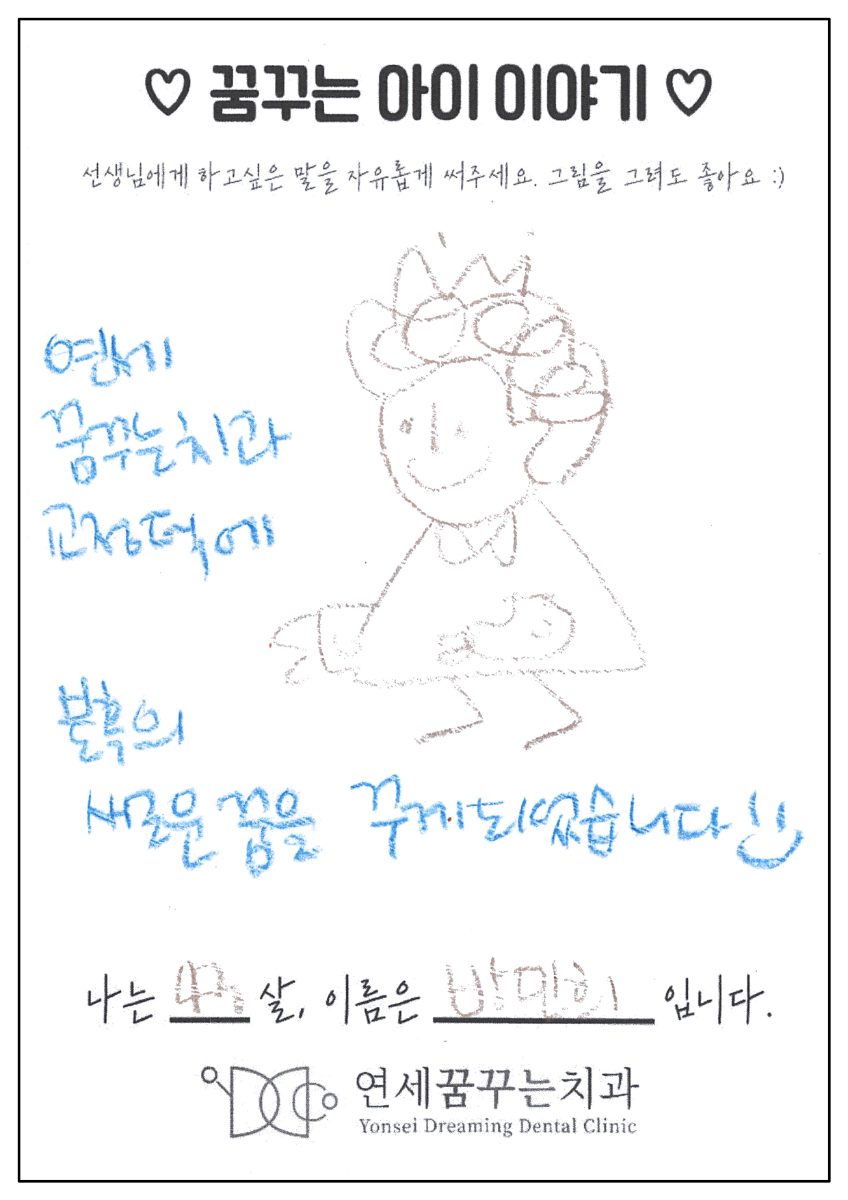 ♡ 꿈꾸는 아이 이야기 ♡
선생님에게 하고싶은 말을 자유롭게 써주세요. 그림을 그려도 좋아요 :)
연세
꿈꾸는치과
교정덕에
불혹의
새로운 꿈을 꾸게되었습니다
나는 43 살, 이름은 방민희 입니다.
연세꿈꾸는치과
Yonsei Dreaming Dental Clinic